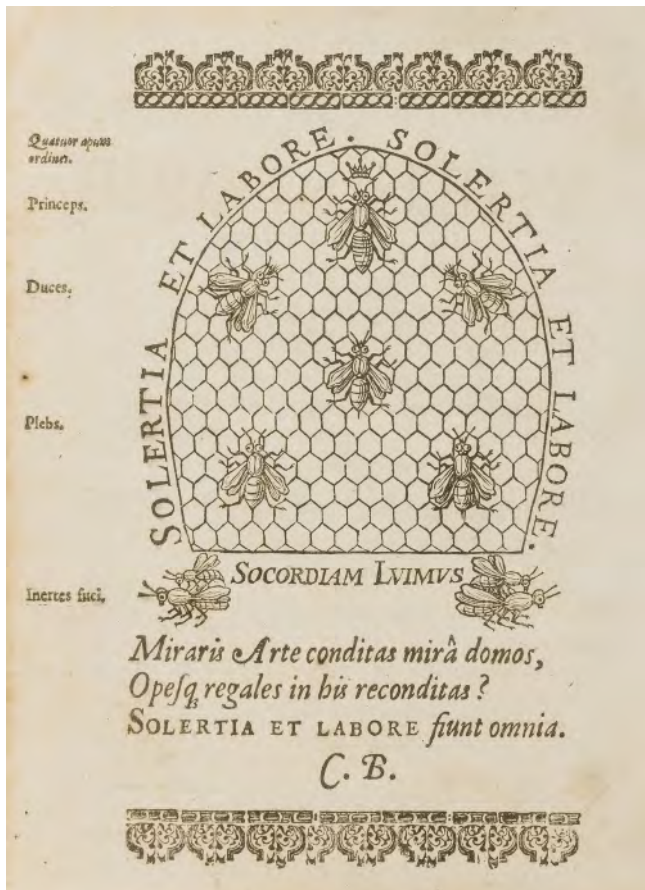 Quatuor apum
ordines.
Princeps.
Duces.
Plebs.
Inertes fuci.
SOLERTIA ET LABORE. SOLERTIA ET LABORE.
SOCORDIAM LVIMVS
Miraris Arte conditas mirâ domos,
Opeſq; regales in his reconditas?
SOLERTIA ET LABORE fiunt omnia.
C. B.